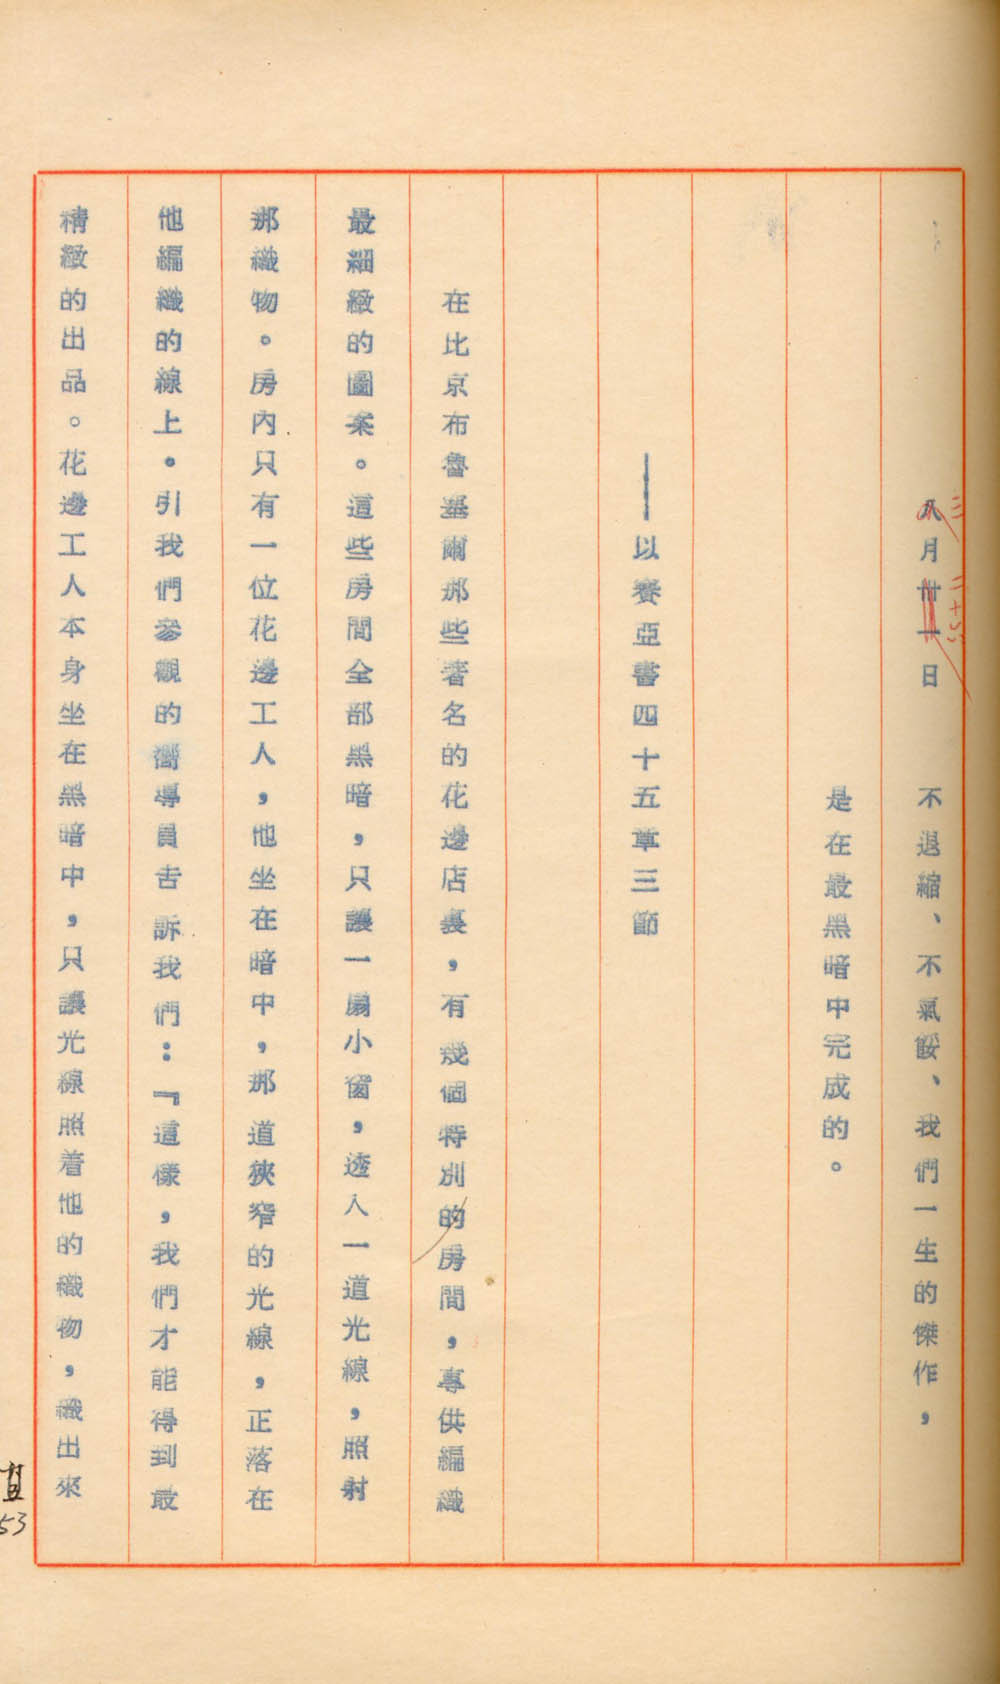 八月卅一日　　不退縮、不氣餒、我們一生的傑作，
三　二十六
是在最黑暗中完成的。
——以賽亞書四十五章三節
在比京布魯塞爾那些著名的花邊店裏，有幾個特別的房間，專供編織
最細緻的圖案。這些房間全部黑暗，只讓一扇小窗，透入一道光線，照射
那織物。房內只有一位花邊工人，他坐在暗中，那道狹窄的光線，正落在
他編織的線上。引我們參觀的嚮導員告訴我們：『這樣，我們才能得到最
精緻的出品。花邊工人本身坐在黑暗中，只讓光線照着他的織物，織出來
53